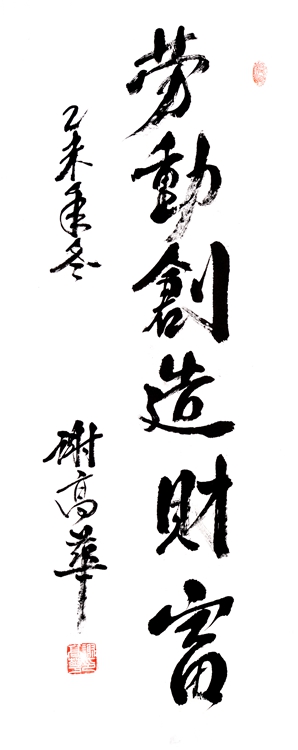 劳動創造財富
乙未年冬
谢高華